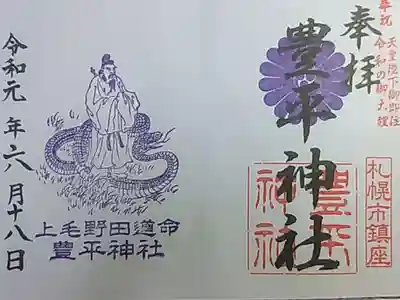 奉祝
天皇陛下御即位
令和の御大禮
奉拝
豊平神社
札幌市鎮座
豊平
神社
上毛野田道命
豊平神社
令和元年六月十八日